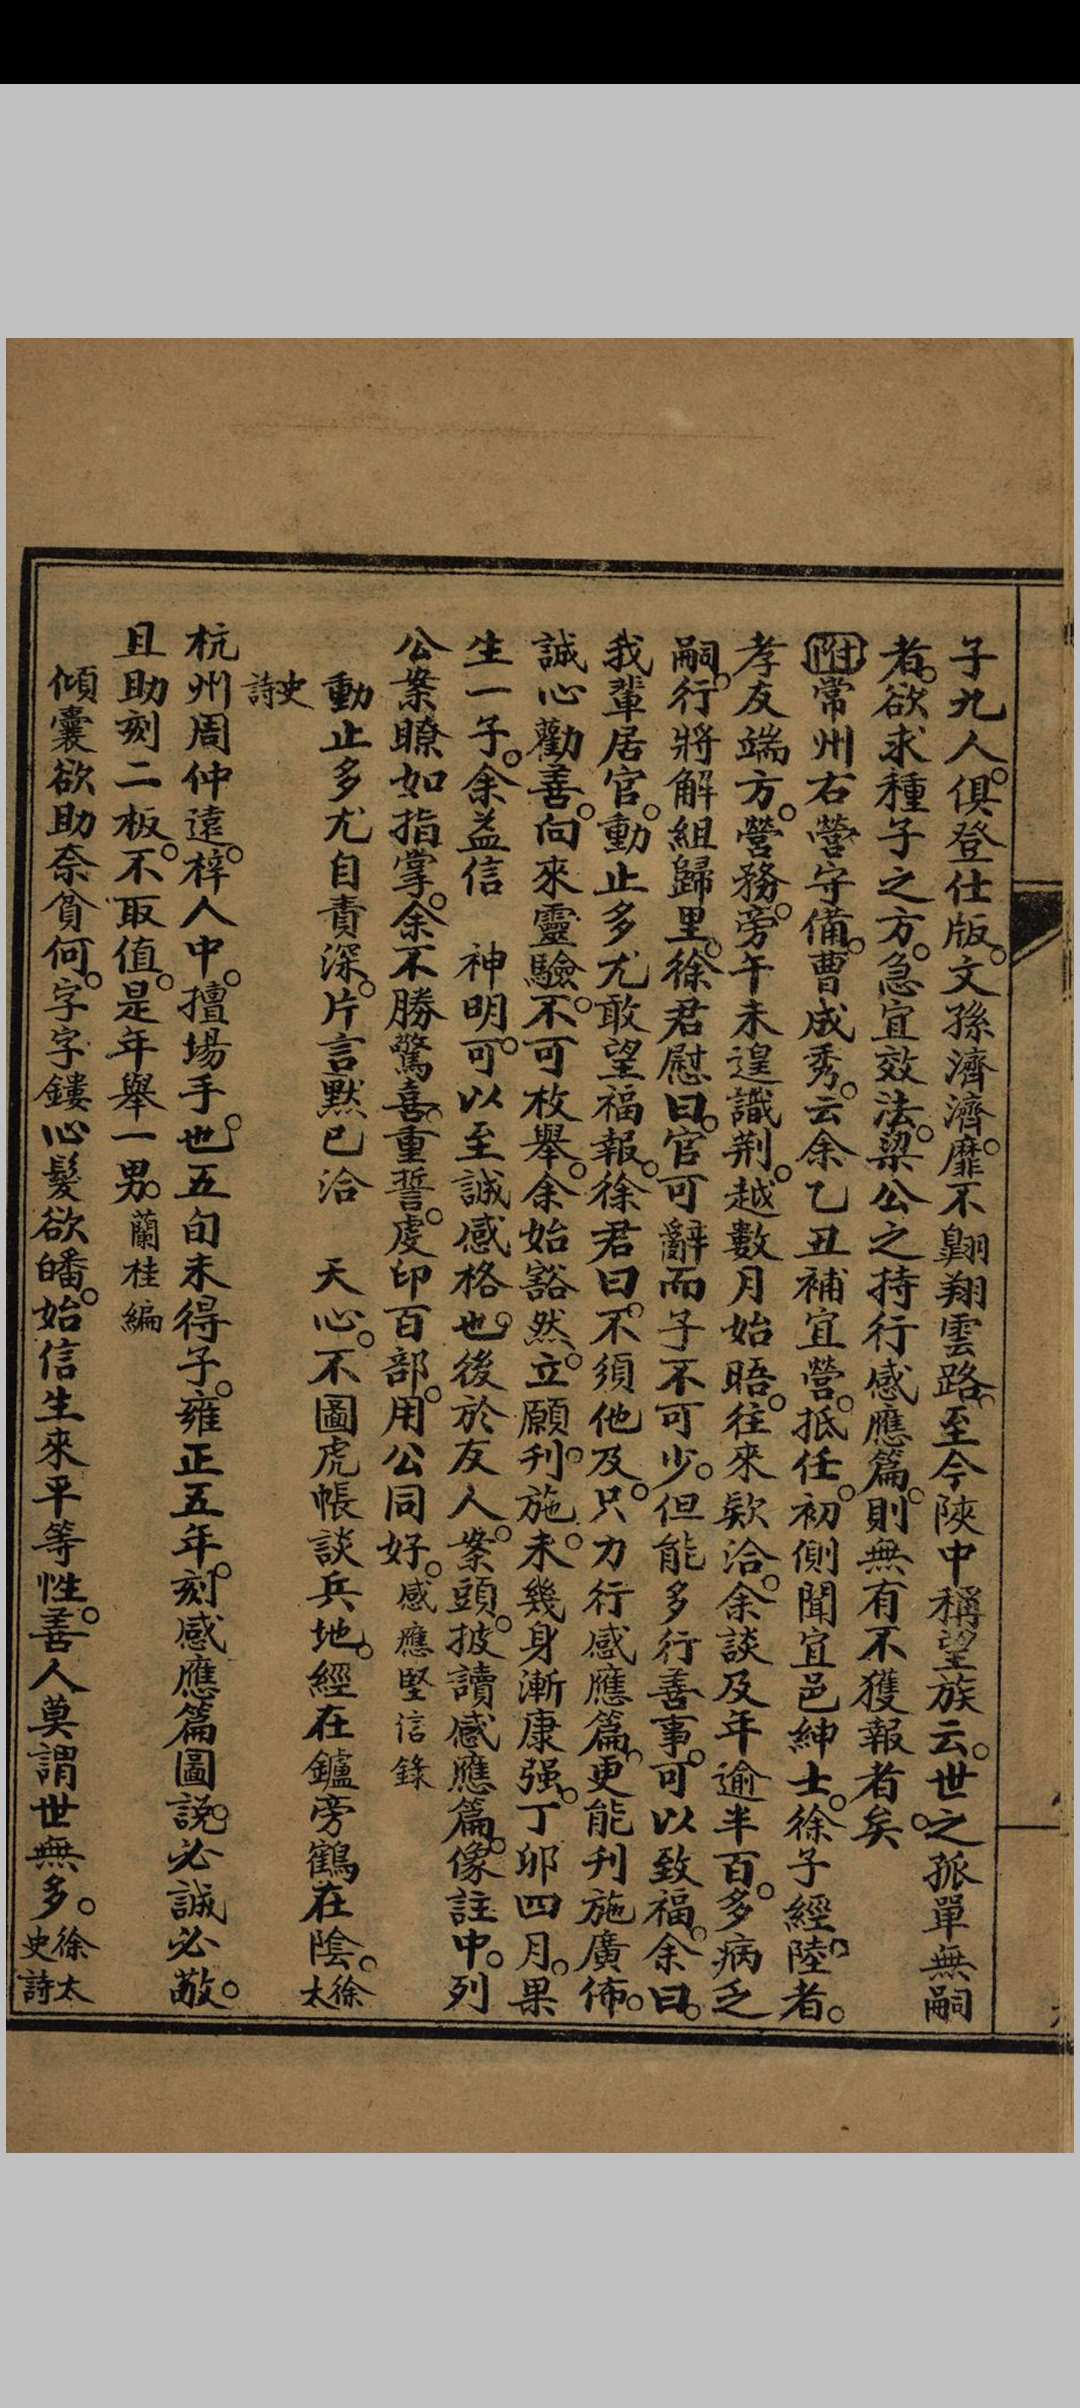 子九人。俱登仕版。文孫濟濟。靡不翺翔雲路。至今陝中稱望族云。世之孤單無嗣
者。欲求種子之方。急宜效法。梁公之持行感應篇。則無有不獲報者矣。
附常州右營守備。曹成秀。云余乙丑補宜營。抵任。初側聞宜邑紳士。徐子經陸者。
孝友端方。營務。旁午未遑識荆。越數月始晤。往來欵洽。余談及年逾半百。多病乏
嗣。行將解組歸里。徐君慰曰。官可辭而子不可少。但能多行善事。可以致福。余曰。
我輩居官。動止多尤敢望福報。徐君曰。不須他及。只力行感應篇。更能刋施廣佈。
誠心勸善。向來靈驗。不可枚舉。余始豁然。立願刋。施。未幾身漸康强。丁卯四月。果
生一子。余益信　神明。可以至誠感格也。後於友人。案頭。披讀感應篇。像註中。列
公案瞭如指掌。余不勝驚喜。重誓。虔印百部。用公同好。感應堅信錄
動止多尤自責深。片言默已洽　天心。不圖虎帳談兵地。經在鑪旁鶴在陰。徐太
史詩
杭州周仲遠。梓人中。擅場手。也五旬未得子。雍正五年。刻感應篇圖說。必誠必敬。
且助刻二板。不取值。是年舉一男。蘭桂編
傾囊欲助奈貧何。字字鏤心髮欲皤。始信生來平等性。善人莫謂世無多。徐太史詩